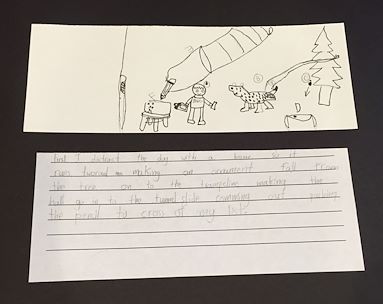 first I distract the dog with a bone so it
runs making an ornament fall from
the tree on to the trampoline making the
ball go in to the tunnel slide comming out pushing
the pencil to cross of my list